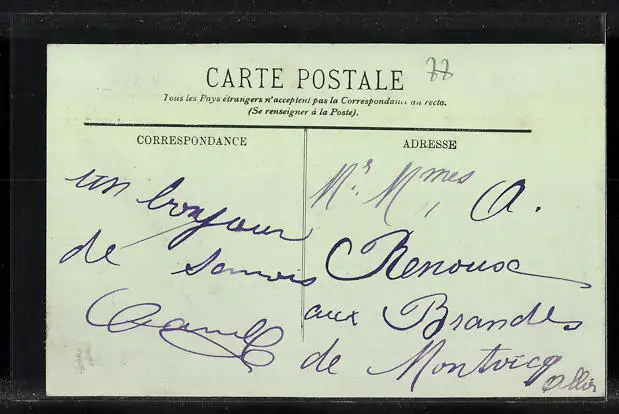 CARTE POSTALE
77
Tous les Pays étrangers n'acceptent pas la Correspondance au recto.
(Se renseigner à la Poste).
CORRESPONDANCE
un bonjour
de Samois
ADRESSE
Mr. Mmes A.
Renoux
aux Brandes
de Montvicq
Allier